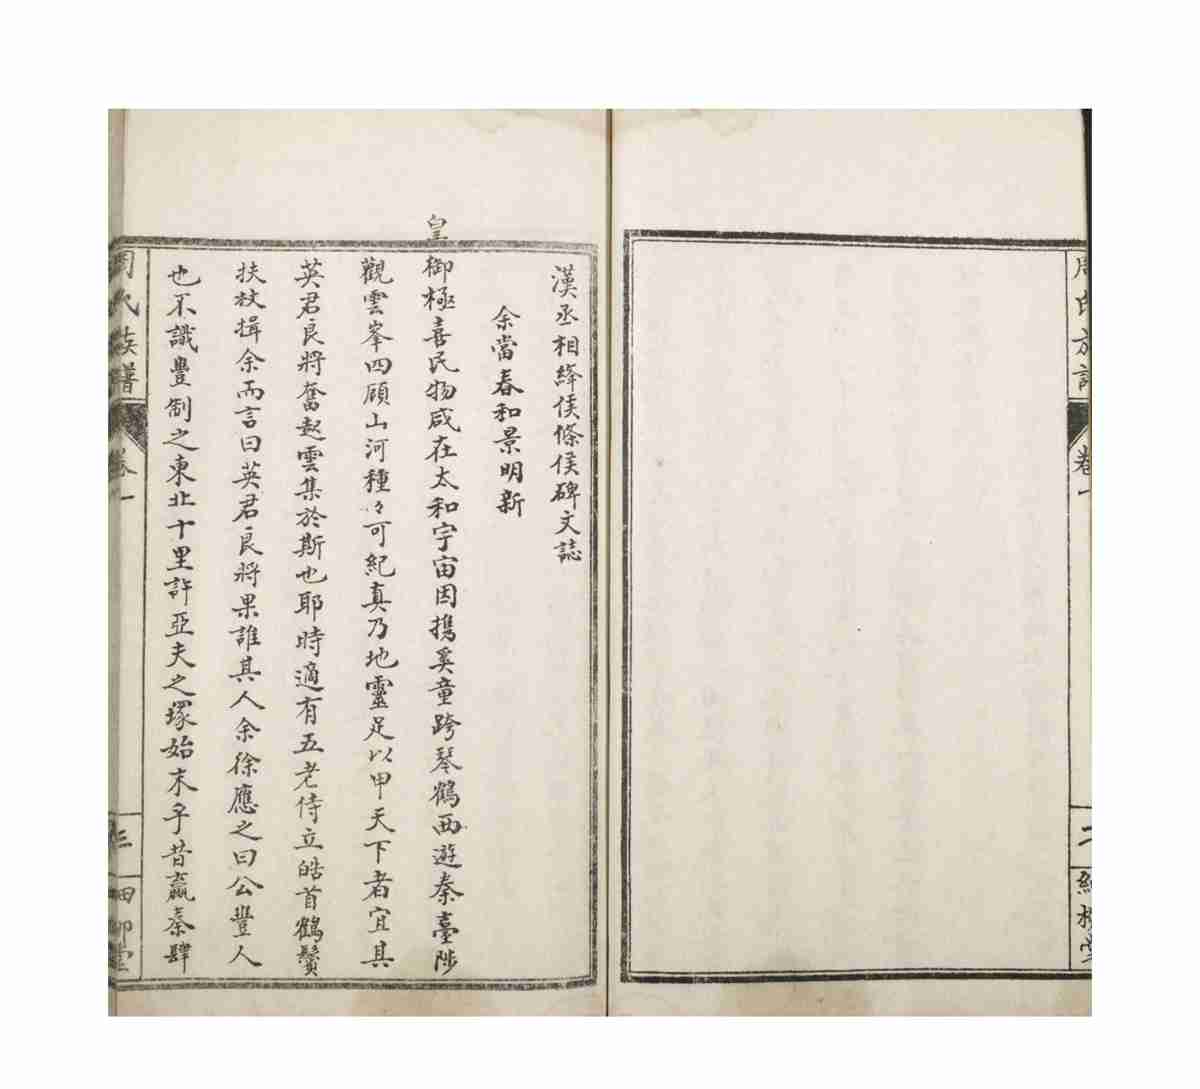 周氏族譜 卷一 二 細柳堂
漢丞相絳侯條侯碑文誌
余當春和景明新
皇御極喜民物咸在太和宇宙因攜奚童跨琴鶴西遊秦臺陟
觀雲峯四顧山河種々可紀真乃地靈足以甲天下者宜其
英君良將奮起雲集於斯也耶時適有五老侍立皓首鶴鬢
扶杖揖余而言曰英君良將果誰其人余徐應之曰公豐人
也不識豐制之東北十里許亞夫之塚始末乎昔嬴秦肆
周氏族譜 卷一 三 細柳堂